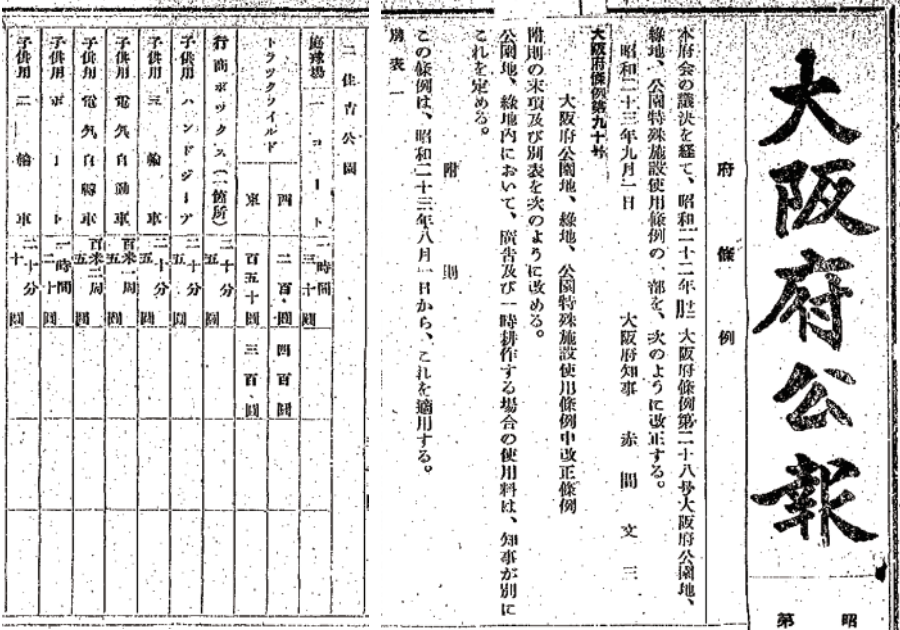 大阪府公報
昭
第
府條例
本府会の議決を経て、昭和二十二年 大阪府條例第二十八号大阪府公園地、
綠地、公園特殊施設使用條例の一部を、次のように改正する。
昭和二十三年九月一日
大阪府知事 赤間文三
大阪府條例第九十号
大阪府公園地、綠地、公園特殊施設使用條例中改正條例
附則の末項及び別表を次のように改める。
公園地、綠地内において、廣告及び一時耕作する場合の使用料は、知事が別に
これを定める。
附則
この條例は、昭和二十三年八月一日から、これを適用する。
別表一
二 住吉公園
庭球場 一コート 一時間 三十圓
トラックフイルド 西 二百圓 四百圓
東 百五十圓 三百圓
行商ボックス(一箇所) 二十分 五圓
子供用ハンドジーア 二十分 五圓
子供用三輪車 二十分 五圓
子供用電気自動車 百米一周 五圓
子供用電気自轉車 百米二周 五圓
子供用ボート 一時間 二十圓
子供用二輪車 二十分 十圓